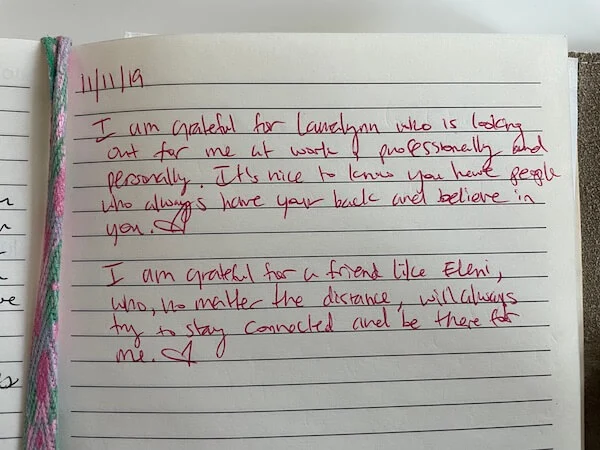 11/11/19
I am grateful for Lauralynn who is looking
out for me at work, professionally and
personally. It's nice to know you have people
who always have your back and believe in
you. ♡
I am grateful for a friend like Eleni,
who, no matter the distance, will always
try to stay connected and be there for
me. ♡